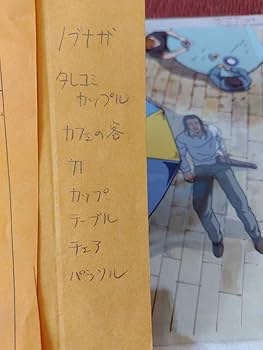 ノブナガ
タレコミ
カップル
カフェの客
刀
カップ
テーブル
チェア
パラソル